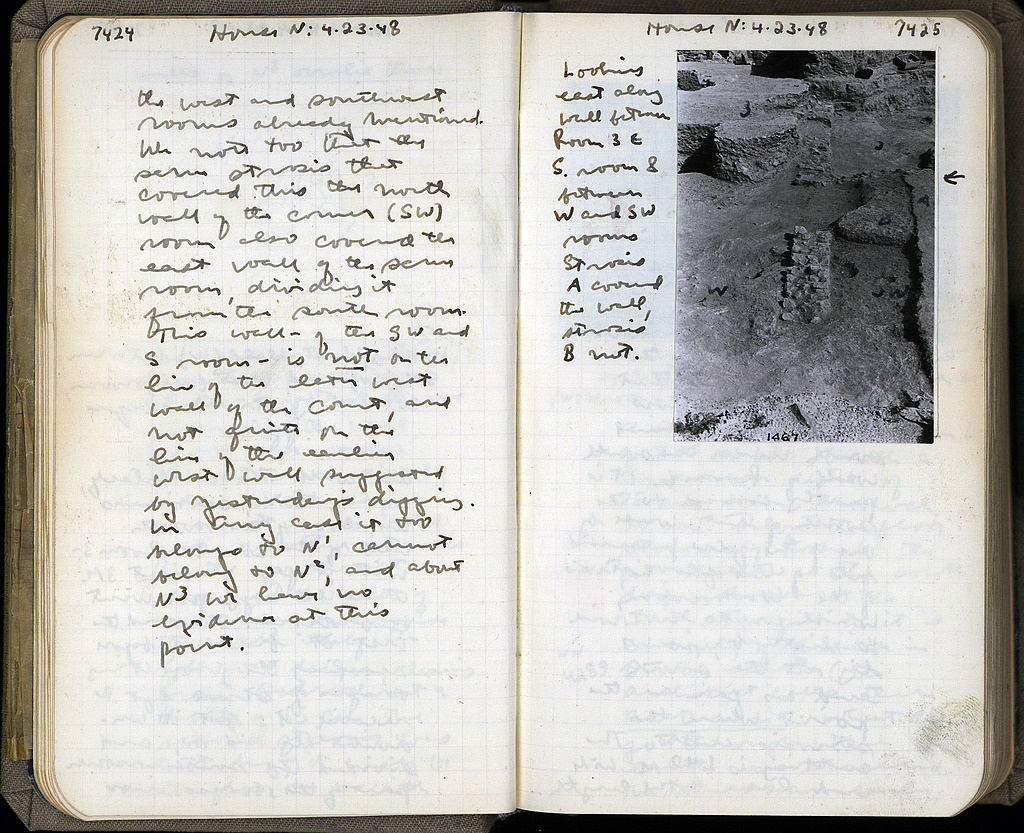 7424 House N: 4.23.48
the west and southwest
rooms already mentioned.
We note too that the
same strosis that
covered this the north
wall of the corner (SW)
room also covered the
east wall of the same
room, dividing it
from the south room.
This wall - of the SW and
S room - is not on the
line of the later west
wall of the court, and
not quite on the
line of the earlier
west wall suggested
by yesterday's digging.
In any case it too
belongs to N¹, cannot
belong to N², and about
N³ we have no
evidence at this
point.
House N: 4.23.48 7425
Looking
east along
wall between
Room 3 &
S. room &
between
W and SW
rooms
Strosis
A covered
the wall,
strosis
B not.
3
A
B
W
SW
1467